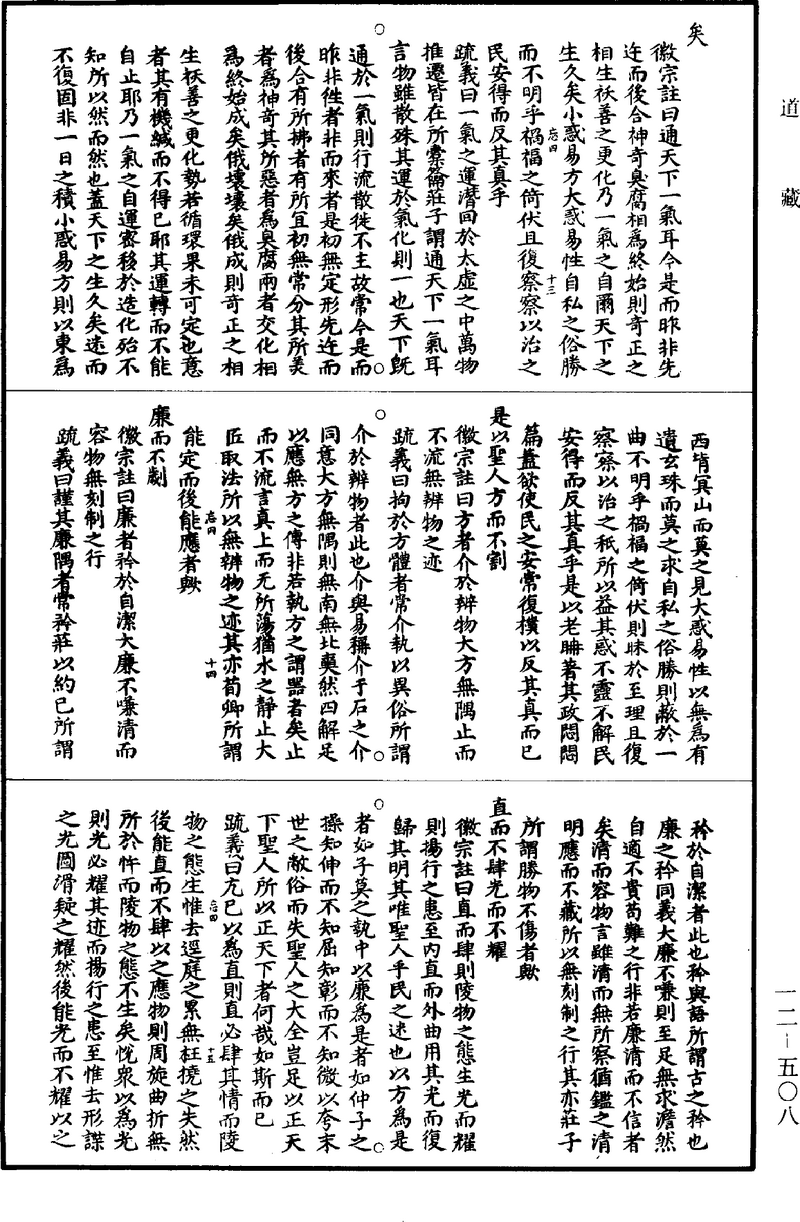 道藏
矣
徽宗註曰通天下一氣耳今是而昨非先
迕而後合神奇臭腐相為終始則奇正之
相生袄善之更化乃一氣之自爾天下之
生久矣小惑易方大惑易性自私之俗勝
而不明乎禍福之倚伏且復察察以治之
民安得而反其真乎
疏義曰一氣之運潛回於太虛之中萬物
推遷皆在所橐籥莊子謂通天下一氣耳
言物雖散殊其運於氣化則一也天下既
通於一氣則行流散徙不主故常今是而
昨非徃者非而來者是初無定形先迕而
後合有所拂者有所宜初無常分其所美
者為神奇其所惡者為臭腐兩者交化相
為終始成矣俄壞壞矣俄成則奇正之相
生袄善之更化勢若循環果未可定也意
者其有機緘而不得已耶其運轉而不能
自止耶乃一氣之自運密移於造化殆不
知所以然而然也蓋天下之生久矣迷而
不復固非一日之積小惑易方則以東為
西背冥山而莫之見大惑易性以無為有
遺玄珠而莫之求自私之俗勝則蔽於一
曲不明乎禍福之倚伏則昧於至理且復
察察以治之秖所以益其惑不靈不解民
安得而反其真乎是以老聃著其政悶悶
篇蓋欲使民之安常復樸以反其真而已
是以聖人方而不割
徽宗註曰方者介於辨物大方無隅止而
不流無辨物之迹
疏義曰拘於方體者常介執以異俗所謂
介於辨物者此也介與易稱介于石之介
同意大方無隅則無南無北奭然四解足
以應無方之傳非若執方之謂器者矣止
而不流言真上而无所蕩猶水之靜止大
匠取法所以無辨物之迹其亦荀卿所謂
能定而後能應者歟
廉而不劌
徽宗註曰廉者矜於自潔大廉不嗛清而
容物無刻制之行
疏義曰謹其廉隅者常矜莊以約已所謂
矜於自潔者此也矜與語所謂古之矜也
廉之矜同義大廉不嗛則至足無求澹然
自適不貴苟難之行非若廉清而不信者
矣清而容物言雖清而無所察猶鑑之清
明應而不藏所以無刻制之行其亦莊子
所謂勝物不傷者歟
直而不肆光而不耀
徽宗註曰直而肆則陵物之態生光而耀
則揚行之患至內直而外曲用其光而復
歸其明其唯聖人乎民之迷也以方為是
者如子莫之執中以廉為是者如仲子之
操知伸而不知屈知彰而不知微以夸末
世之敝俗而失聖人之大全豈足以正天
下聖人所以正天下者何哉如斯而已
疏義曰亢已以為直則直必肆其情而陵
物之態生惟去逕庭之累無枉撓之失然
後能直而不肆以之應物則周旋曲折無
所於忤而陵物之態不生矣恍衆以為光
則光必耀其迹而揚行之患至惟去形諜
之光圖滑疑之耀然後能光而不耀以之
忘四
十三
忘四
十四
忘四
十五
一二－五〇八